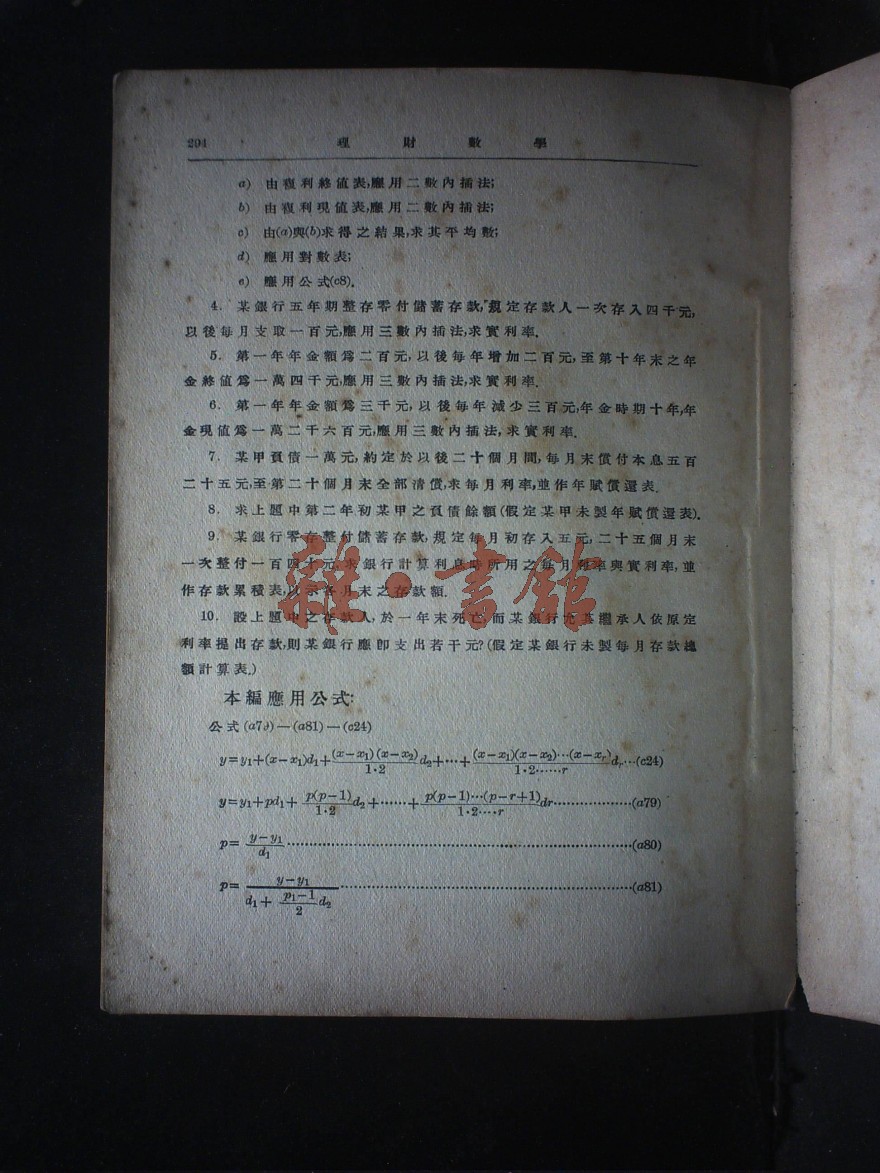 294 理財數學
a) 由複利終值表,應用二數內插法;
b) 由複利現值表,應用二數內插法;
c) 由(a)與(b)求得之結果,求其平均數;
d) 應用對數表;
e) 應用公式(c8).
4. 某銀行五年期整存零付儲蓄存款,規定存款人一次存入四千元,
以後每月支取一百元,應用三數內插法,求實利率.
5. 第一年年金額爲二百元,以後每年增加二百元,至第十年末之年
金終值爲一萬四千元,應用三數內插法,求實利率.
6. 第一年年金額爲三千元,以後每年減少三百元,年金時期十年,年
金現值爲一萬二千六百元,應用三數內插法,求實利率.
7. 某甲負債一萬元,約定於以後二十個月間,每月末償付本息五百
二十五元,至第二十個月末全部清償,求每月利率,並作年賦償還表.
8. 求上題中第二年初某甲之負債餘額(假定某甲未製年賦償還表).
9. 某銀行零存整付儲蓄存款,規定每月初存入五元,二十五個月末
一次整付一百四十元,求銀行計算利息時所用之每月利率與實利率,並
作存款累積表,以示各月末之存款額.
10. 設上題中之存款人,於一年末死亡,而某銀行允其繼承人依原定
利率提出存款,則某銀行應卽支出若干元?(假定某銀行未製每月存款總
額計算表.)
本編應用公式:
公式(a79)—(a81)—(c24)
y=y₁+(x−x₁)d₁+(x−x₁)(x−x₂)/1·2 d₂+···+(x−x₁)(x−x₂)···(x−xᵣ)/1·2······r dᵣ···(c24)
y=y₁+pd₁+p(p−1)/1·2 d₂+······+p(p−1)···(p−r+1)/1·2····r dr··················(a79)
p=y−y₁/d₁··················(a80)
p=y−y₁/d₁+p₁−1/2 d₂··················(a81)
雜·書館